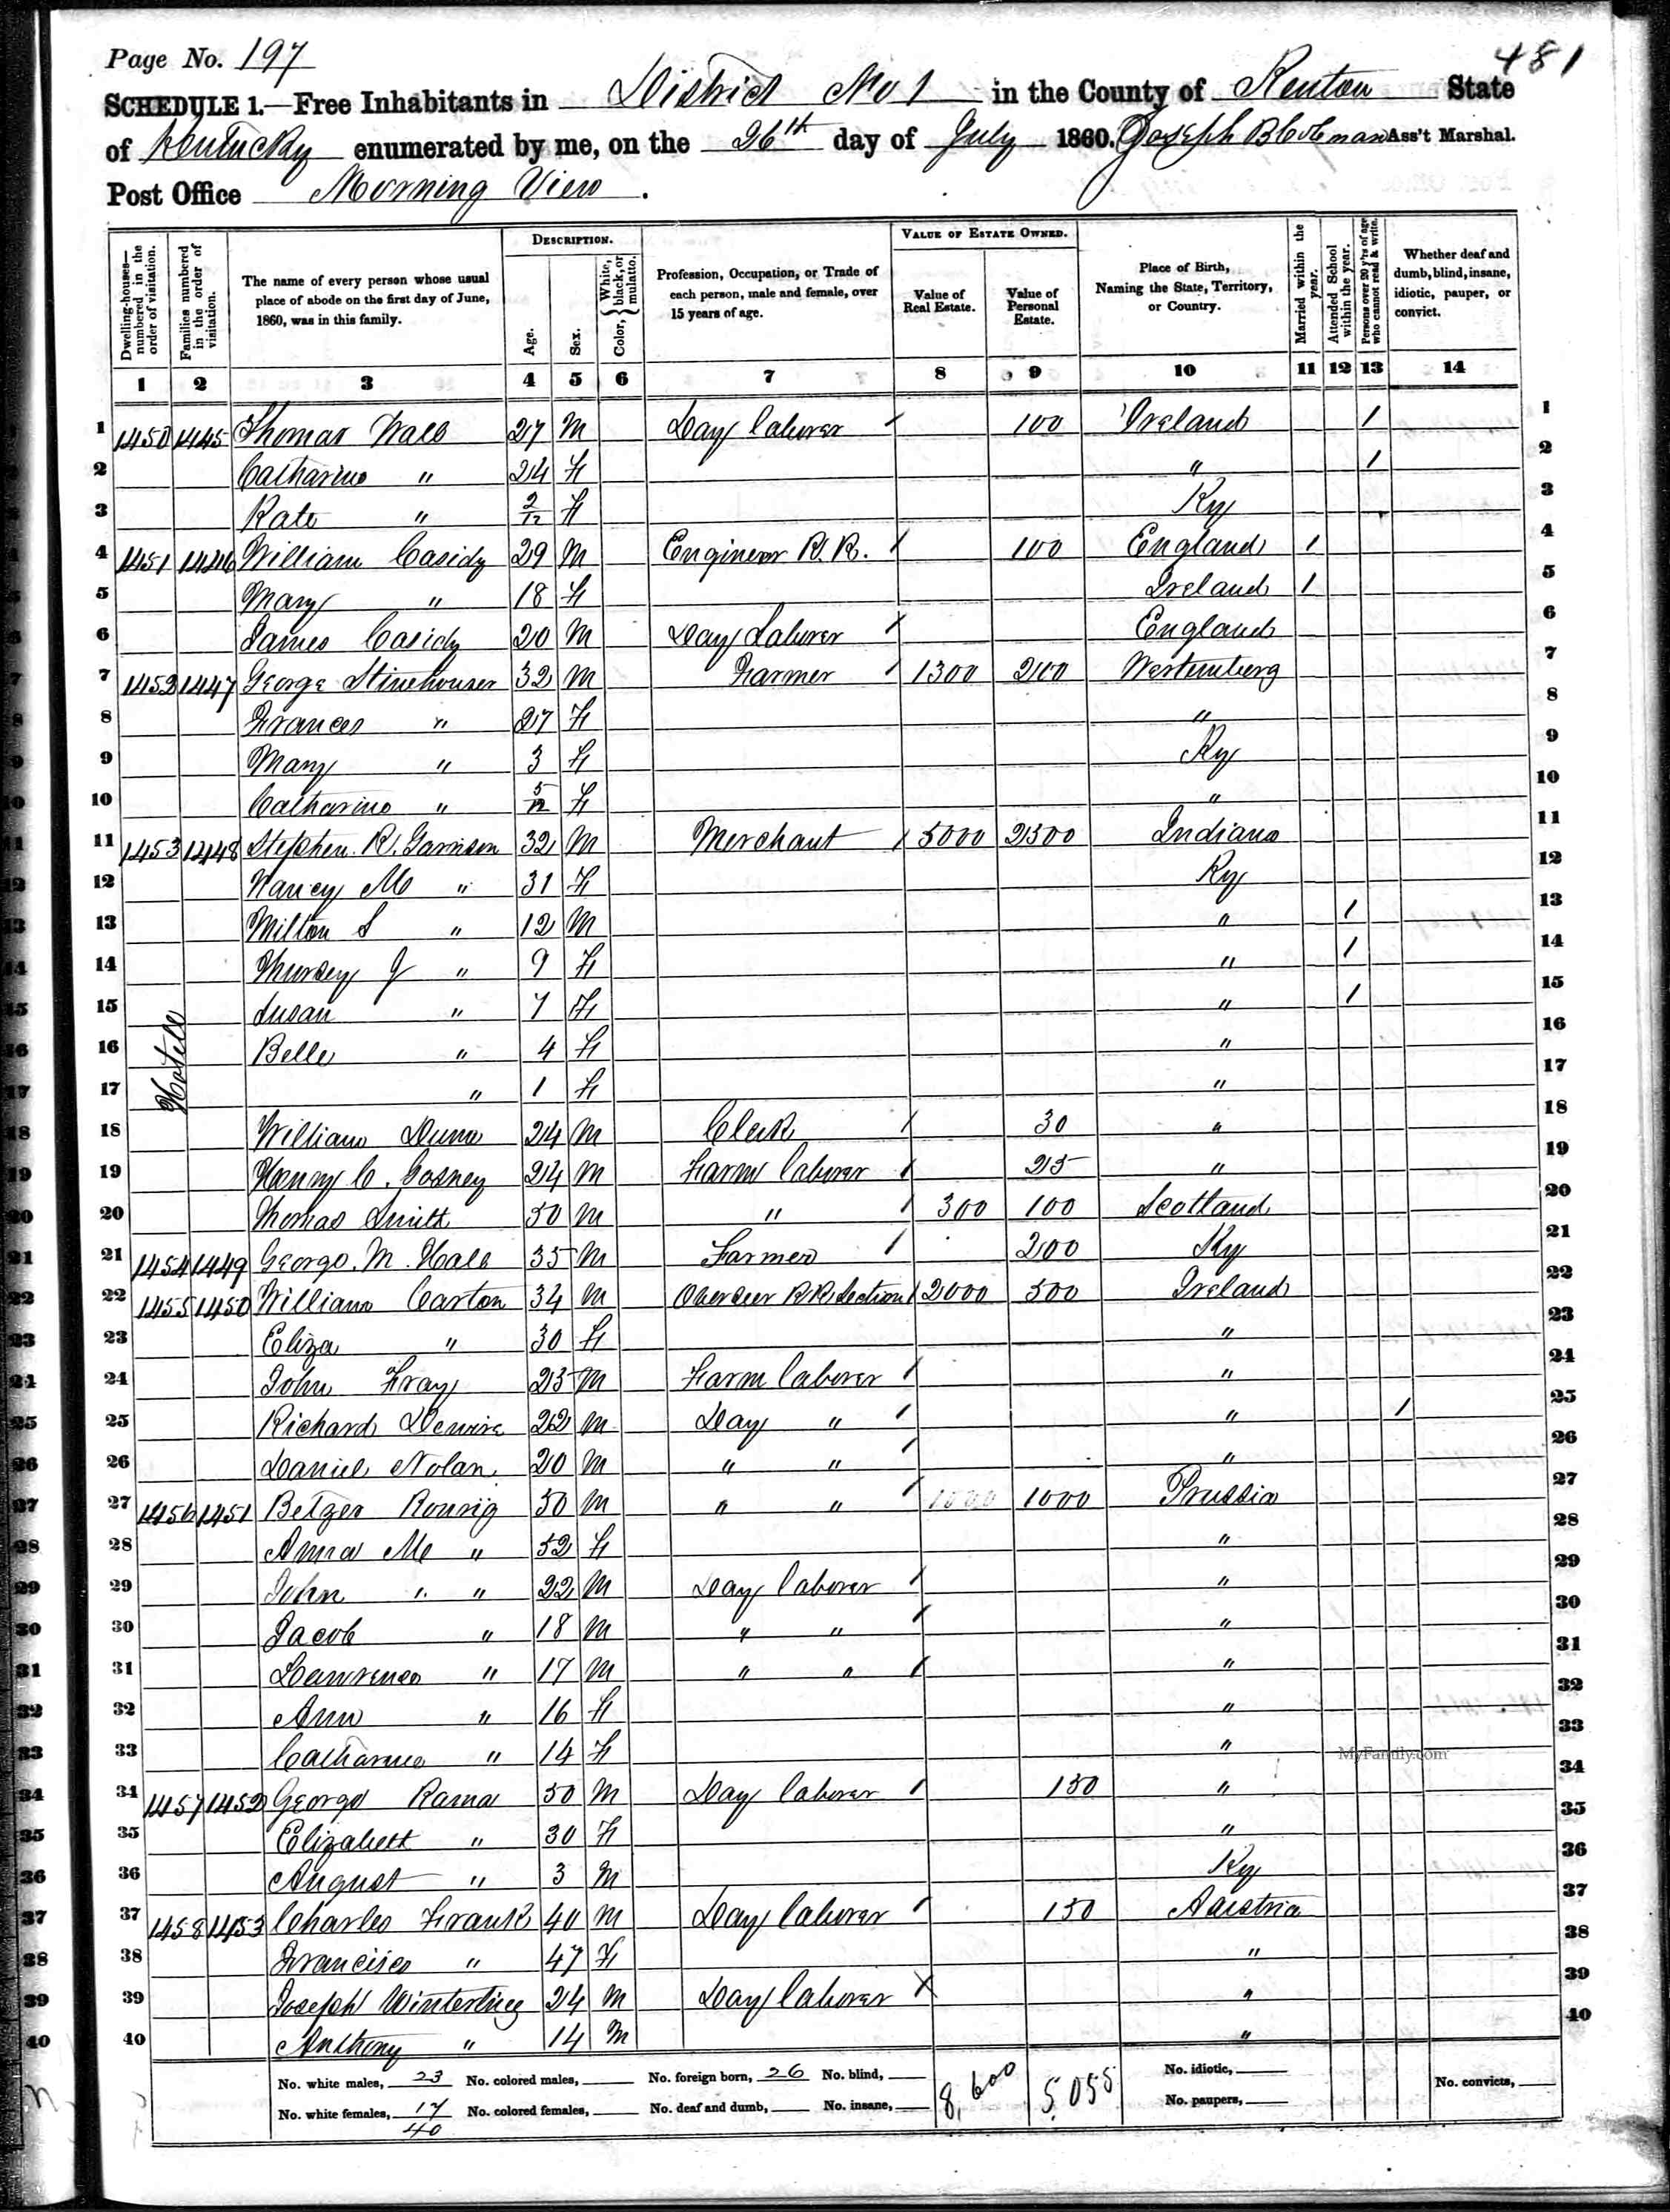 Page No. 197
481
SCHEDULE 1.—Free Inhabitants in District No 1 in the County of Kenton State
of Kentucky enumerated by me, on the 26th day of July 1860. Joseph B Ass't Marshal.
Post Office Morning View.
Dwelling-houses—numbered in the order of visitation.
Families numbered in the order of visitation.
The name of every person whose usual place of abode on the first day of June, 1860, was in this family.
DESCRIPTION.
Age.
Sex.
Color, {White, black, or mulatto.
Profession, Occupation, or Trade of each person, male and female, over 15 years of age.
VALUE OF ESTATE OWNED.
Value of Real Estate.
Value of Personal Estate.
Place of Birth, Naming the State, Territory, or Country.
Married within the year.
Attended School within the year.
Persons over 20 y'rs of age who cannot read & write.
Whether deaf and dumb, blind, insane, idiotic, pauper, or convict.
1 2 3 4 5 6 7 8 9 10 11 12 13 14
1 1450 1445 Thomas Wall 27 M Day laborer / 100 Ireland 1 1
2 Catharine " 24 F " 1 2
3 Kate " 2/12 F Ky 3
4 1451 1446 William Casidy 29 M Engineer R. R. / 100 England 1 4
5 Mary " 18 F Ireland 1 5
6 James Casidy 20 M Day Laborer / England 6
7 1452 1447 George Stinehouser 32 M Farmer / 1300 200 Wertemberg 7
8 Frances " 27 F " 8
9 Mary " 3 F Ky 9
10 Catharine " 5/12 F " 10
11 1453 1448 Stephen R. Garrison 32 M Merchant / 5000 2500 Indiana 11
12 Nancy M " 31 F Ky 12
13 Milton S " 12 M " 1 13
14 J " 9 F " 1 14
15 Susan " 7 F " 1 15
Hotell
16 Belle " 4 F " 16
17 " 1 F " 17
18 William Dunn 24 M Clerk / 30 " 18
19 Henry C. Gosney 24 M Farm laborer / 25 " 19
20 Thomas Smith 50 M " / 300 100 Scotland 20
21 1454 1449 George. M. Hall 35 M Farmer / 200 Ky 21
22 1455 1450 William Carton 34 M Overseer RR Section / 2000 500 Ireland 22
23 Eliza " 30 F " 23
24 John Fray 25 M Farm laborer / " 24
25 Richard 22 M Day " / " 1 25
26 Daniel Nolan 20 M " " / " 26
27 1456 1451 Betzer Rousig 50 M " " / 1000 1000 Prussia 27
28 Anna M " 52 F " 28
29 John " " 22 M Day laborer / " 29
30 Jacob " 18 M " " / " 30
31 Lawrence " 17 M " " / " 31
32 Ann " 16 F " 32
33 Catharine " 14 F " 33
MyFamily.com
34 1457 1452 George Rama 50 M Day laborer / 150 " 34
35 Elizabeth " 30 F " 35
36 August " 3 M Ky 36
37 1458 1453 Charles Frank 40 M Day laborer / 150 Austria 37
38 Francisco " 47 F " 38
39 Joseph Winterling 24 M Day laborer X " 39
40 Anthony " 14 M " 40
No. white males, 23 No. colored males, No. foreign born, 26 No. blind, 8,600 5,055 No. idiotic, No. convicts,
No. white females, 17 No. colored females, No. deaf and dumb, No. insane, No. paupers,
40